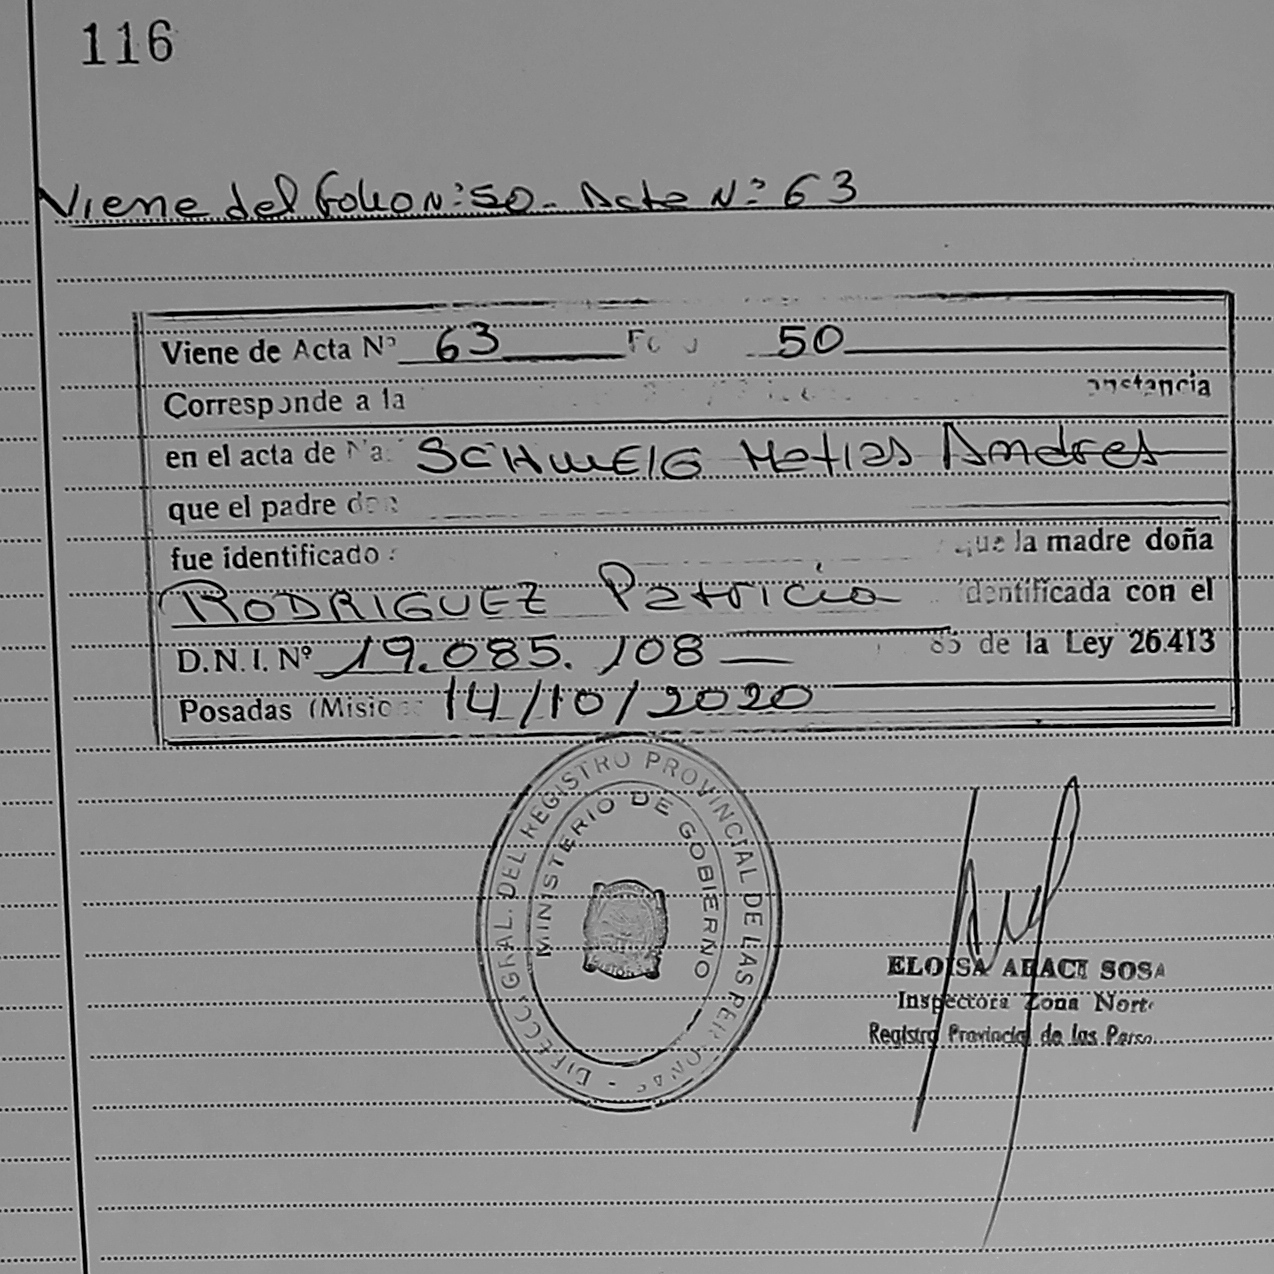 116
Viene del Folio Nº: 50 - Acta Nº: 63
Viene de Acta Nº 63 50
Corresponde a la
en el acta de SCHWEIG Matias Andres
que el padre
fue identificado que la madre doña
RODRIGUEZ Patricia identificada con el
D.N.I. Nº 19.085.108 85 de la Ley 26.413
Posadas 14/10/2020
DIRECC. GRAL. DEL REGISTRO PROVINCIAL DE LAS PERSONAS
MINISTERIO DE GOBIERNO
ELOISA SOSA
Inspectora Zona Norte
Registro Provincial de las